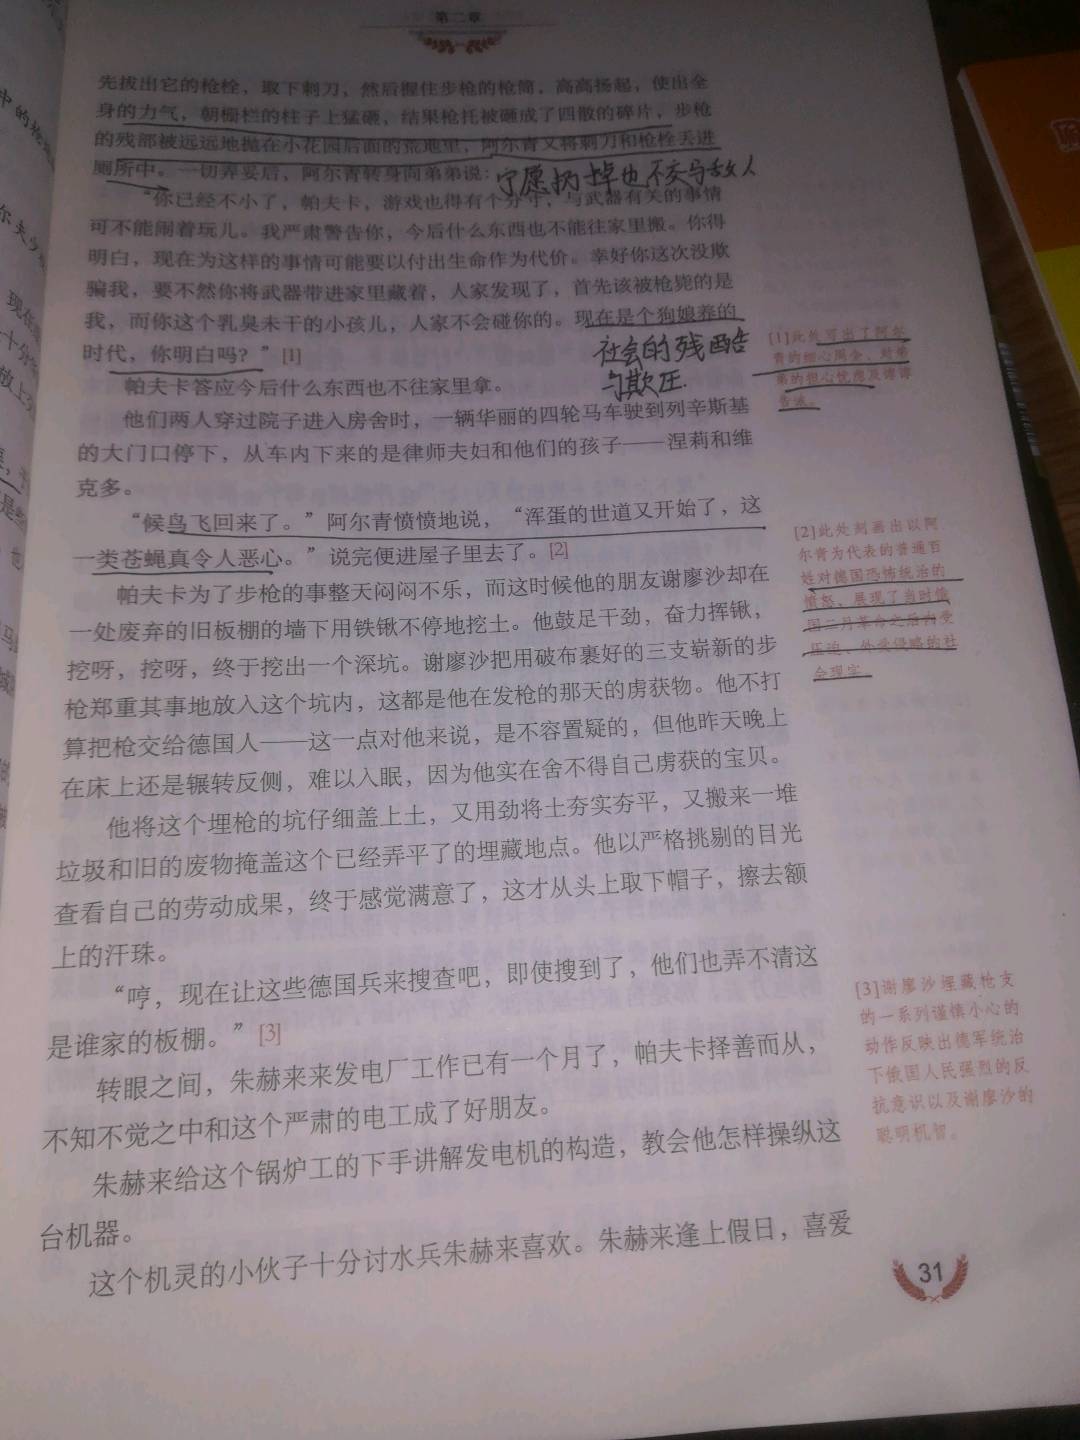 第二章
先拔出它的枪栓，取下刺刀，然后握住步枪的枪筒，高高扬起，使出全
身的力气，朝栅栏的柱子上猛砸，结果枪托被砸成了四散的碎片，步枪
的残部被远远地抛在小花园后面的荒地里，阿尔青又将刺刀和枪栓丢进
厕所中。一切弄妥后，阿尔青转身向弟弟说：
宁愿扔掉也不交与敌人
“你已经不小了，帕夫卡，游戏也得有个分寸，与武器有关的事情
可不能闹着玩儿。我严肃警告你，今后什么东西也不能往家里搬。你得
明白，现在为这样的事情可能要以付出生命作为代价。幸好你这次没欺
骗我，要不然你将武器带进家里藏着，人家发现了，首先该被枪毙的是
我，而你这个乳臭未干的小孩儿，人家不会碰你的。现在是个狗娘养的
时代，你明白吗？”[1]
社会的残酷
与欺压.
[1]此处写出了阿尔
青的细心周全、对弟
弟的担心忧虑及谆谆
告诫。
帕夫卡答应今后什么东西也不往家里拿。
他们两人穿过院子进入房舍时，一辆华丽的四轮马车驶到列辛斯基
的大门口停下，从车内下来的是律师夫妇和他们的孩子——涅莉和维
克多。
“候鸟飞回来了。”阿尔青愤愤地说，“浑蛋的世道又开始了，这
一类苍蝇真令人恶心。”说完便进屋子里去了。[2]
[2]此处刻画出以阿
尔青为代表的普通百
姓对德国恐怖统治的
愤怒，展现了当时俄
国二月革命之后内受
压迫、外受侵略的社
会现实。
帕夫卡为了步枪的事整天闷闷不乐，而这时候他的朋友谢廖沙却在
一处废弃的旧板棚的墙下用铁锹不停地挖土。他鼓足干劲，奋力挥锹，
挖呀，挖呀，终于挖出一个深坑。谢廖沙把用破布裹好的三支崭新的步
枪郑重其事地放入这个坑内，这都是他在发枪的那天的虏获物。他不打
算把枪交给德国人——这一点对他来说，是不容置疑的，但他昨天晚上
在床上还是辗转反侧，难以入眠，因为他实在舍不得自己虏获的宝贝。
他将这个埋枪的坑仔细盖上土，又用劲将土夯实夯平，又搬来一堆
垃圾和旧的废物掩盖这个已经弄平了的埋藏地点。他以严格挑剔的目光
查看自己的劳动成果，终于感觉满意了，这才从头上取下帽子，擦去额
上的汗珠。
“哼，现在让这些德国兵来搜查吧，即使搜到了，他们也弄不清这
是谁家的板棚。”[3]
[3]谢廖沙埋藏枪支
的一系列谨慎小心的
动作反映出德军统治
下俄国人民强烈的反
抗意识以及谢廖沙的
聪明机智。
转眼之间，朱赫来来发电厂工作已有一个月了，帕夫卡择善而从，
不知不觉之中和这个严肃的电工成了好朋友。
朱赫来给这个锅炉工的下手讲解发电机的构造，教会他怎样操纵这
台机器。
这个机灵的小伙子十分讨水兵朱赫来喜欢。朱赫来逢上假日，喜爱
31